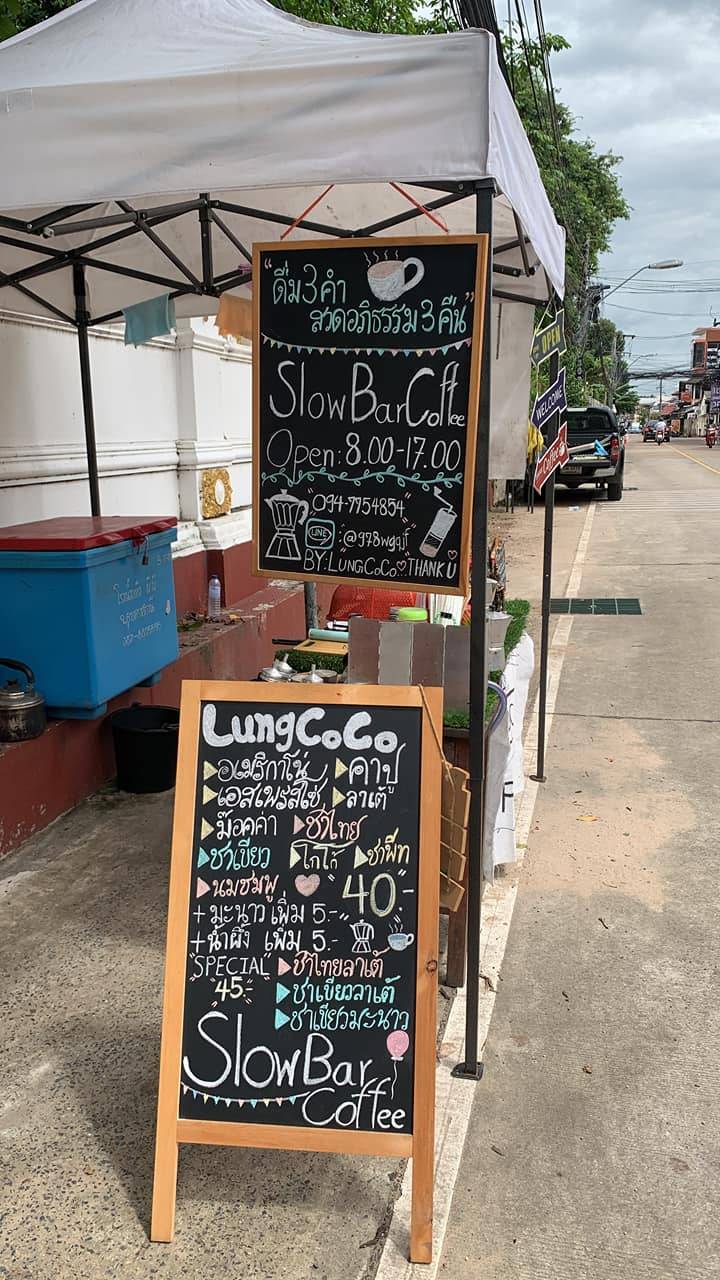 "ดื่ม 3 คำ
สวดอภิธรรม 3 คืน"
Slow Bar Coffee
Open: 8.00-17.00
094-7754854
LINE :@978wgqjf
BY: LUNG CoCo... THANK U
OPEN
WELCOME
Coffee
LungCoCo
อเมริกาโน่ คาปู
เอสเพรสโซ่ ลาเต้
ม็อคค่า ชาไทย
ชาเขียว โกโก้ ชาพีท
นมชมพู 40.-
+ มะนาว เพิ่ม 5.-
+ น้ำผึ้ง เพิ่ม 5.-
"SPECIAL" ชาไทยลาเต้
"45.-" ชาเขียวลาเต้
ชาเขียวมะนาว
Slow Bar
Coffee